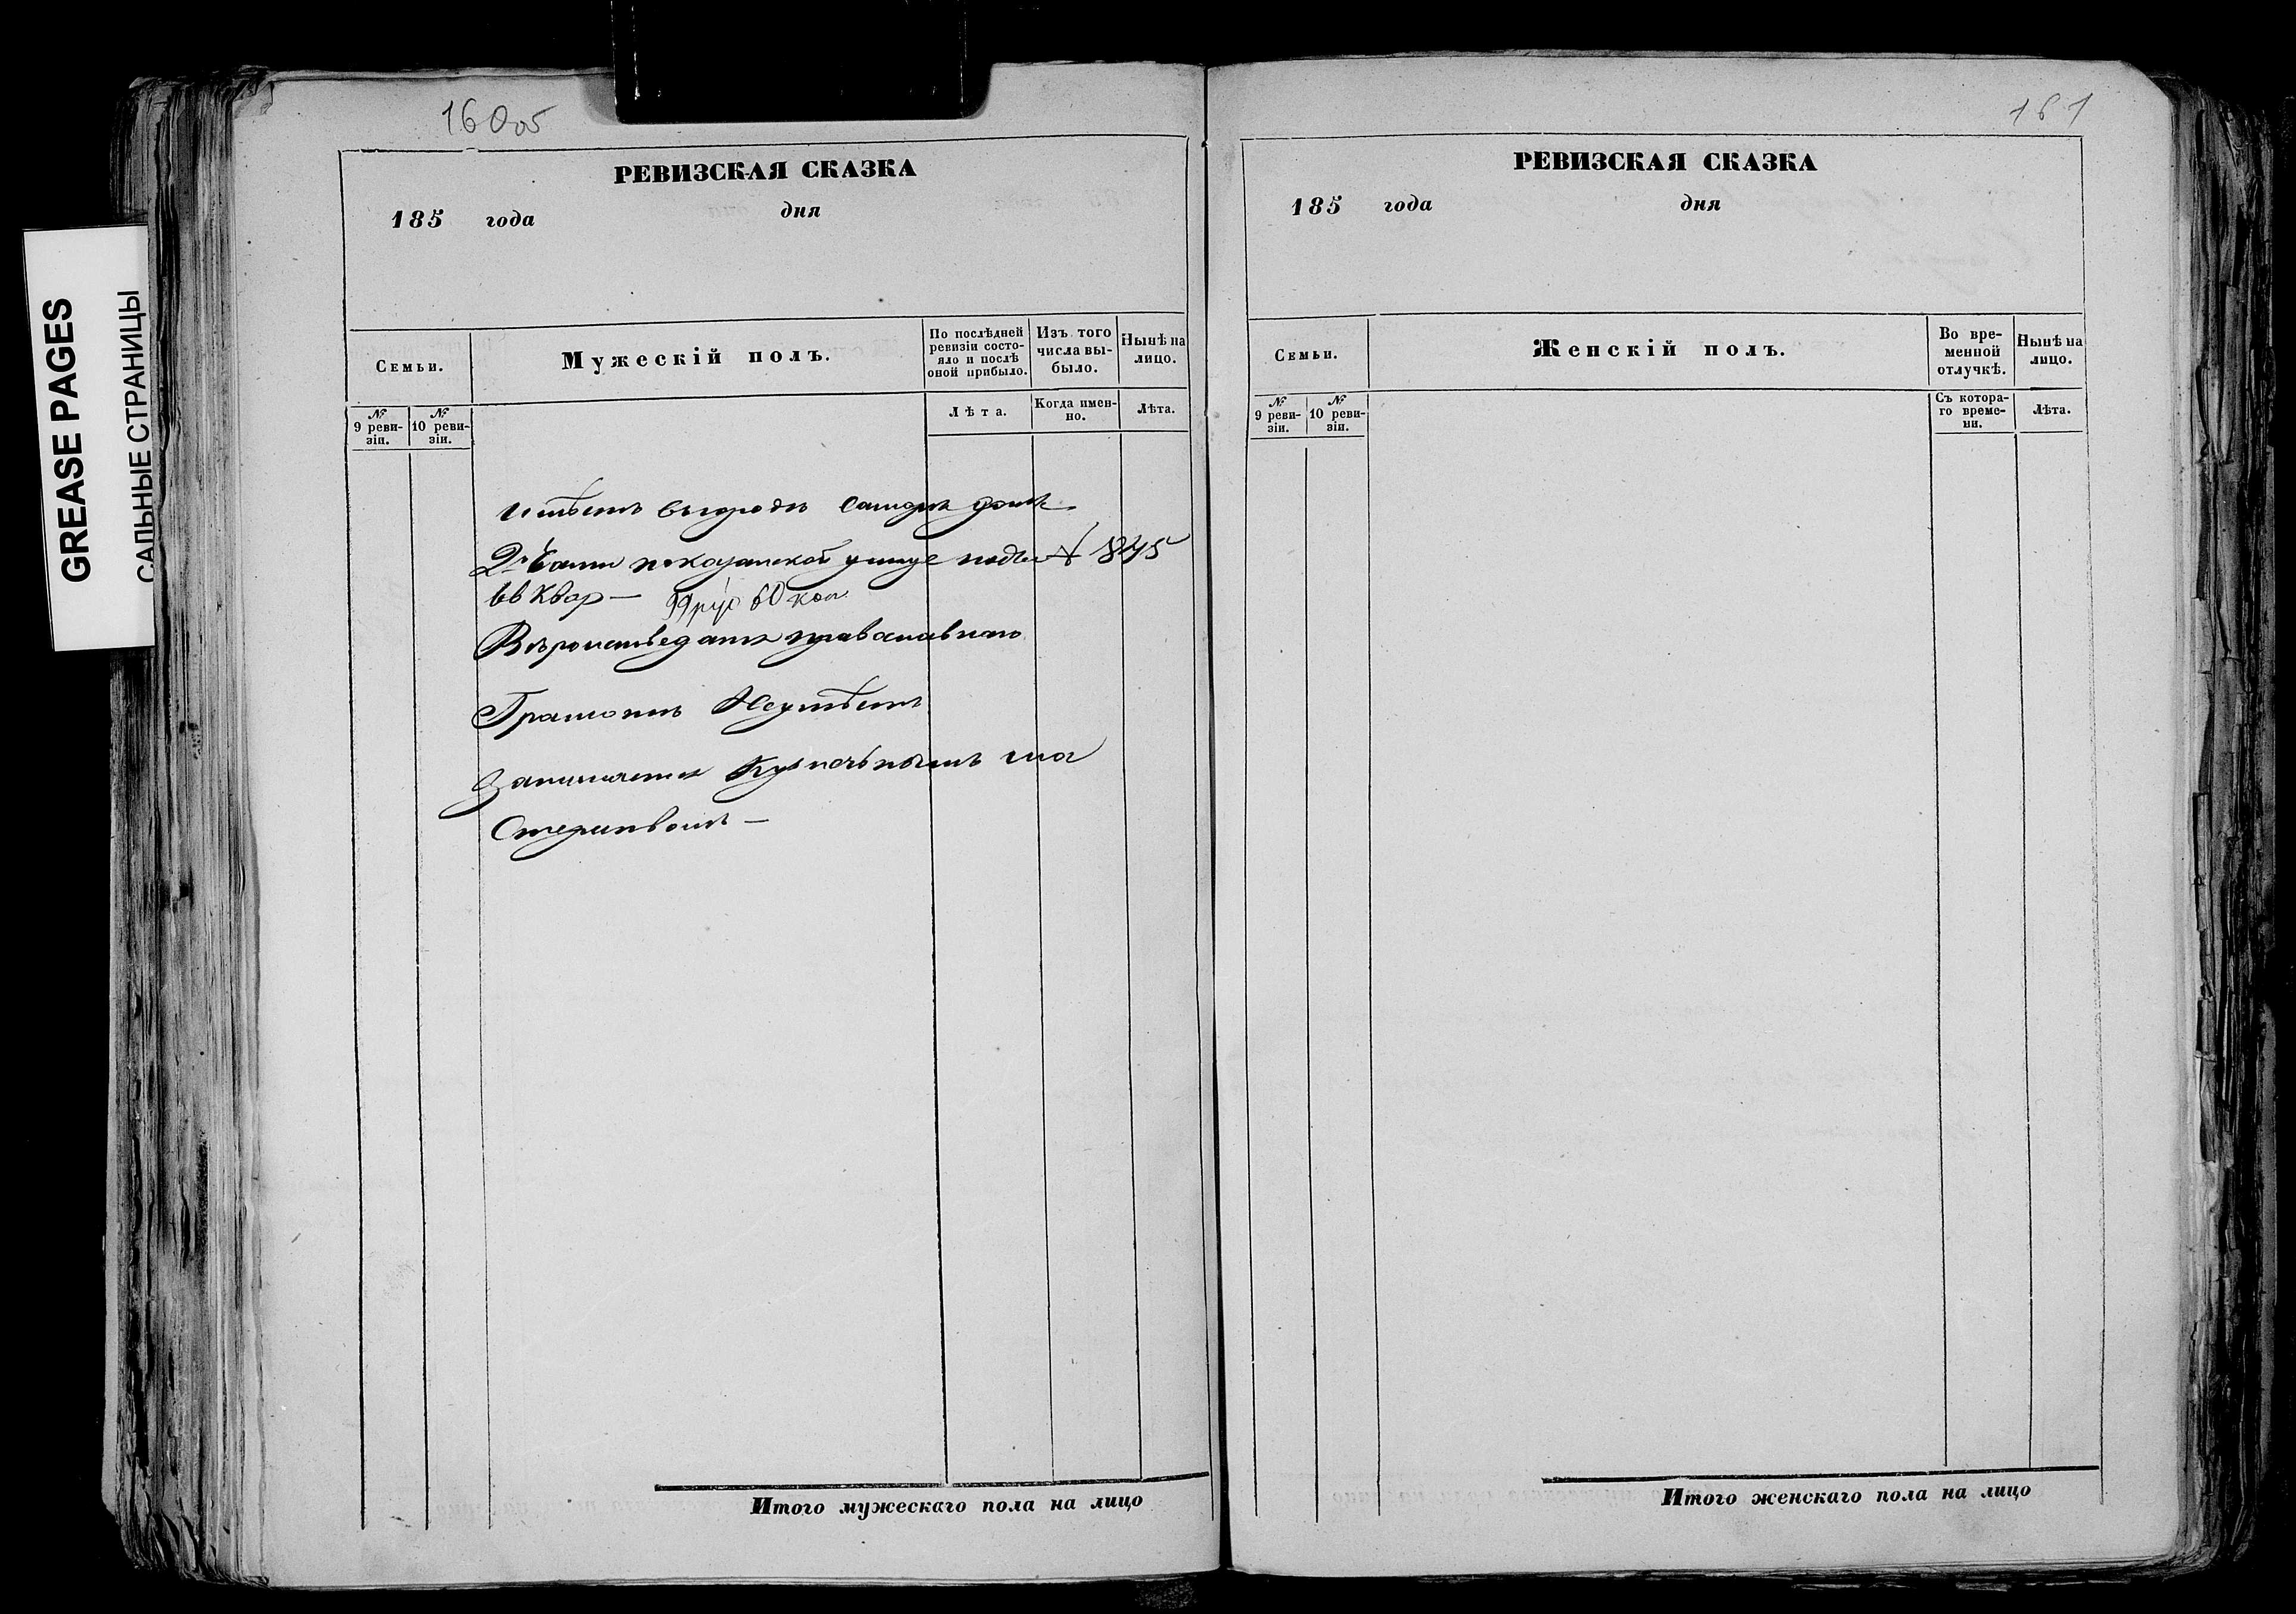 GREASE PAGES
САЛЬНЫЕ СТРАНИЦЫ
160об
РЕВИЗСКАЯ СКАЗКА
185 года дня
Семьи.
Мужескій полъ.
По послѣдней ревизіи состояло и послѣ оной прибыло.
Изъ того числа выбыло.
Нынѣ на лицо.
№ 9 ревизіи.
№ 10 ревизіи.
Лѣта.
Когда именно.
Лѣта.
Имѣетъ вгородѣ домъ
2й части показанской улице подъ № 845
вв Квар — 99 руб 60 коп
Вѣроисповеданія православнаго
Грамотѣ Неумѣетъ
Занимается Кузнечнымъ ма
стерствомъ —
Итого мужескаго пола на лицо
161
РЕВИЗСКАЯ СКАЗКА
185 года дня
Семьи.
Женскій полъ.
Во временной отлучкѣ.
Нынѣ на лицо.
№ 9 ревизіи.
№ 10 ревизіи.
Съ котораго времени.
Лѣта.
Итого женскаго пола на лицо